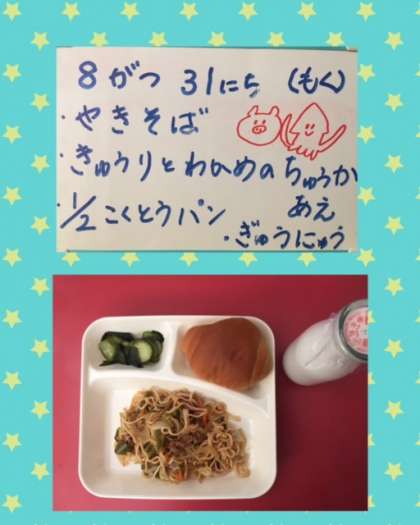 8がつ 31にち (もく)
・やきそば
・きゅうりとわかめのちゅうか
あえ
・1/2こくとうパン
・ぎゅうにゅう